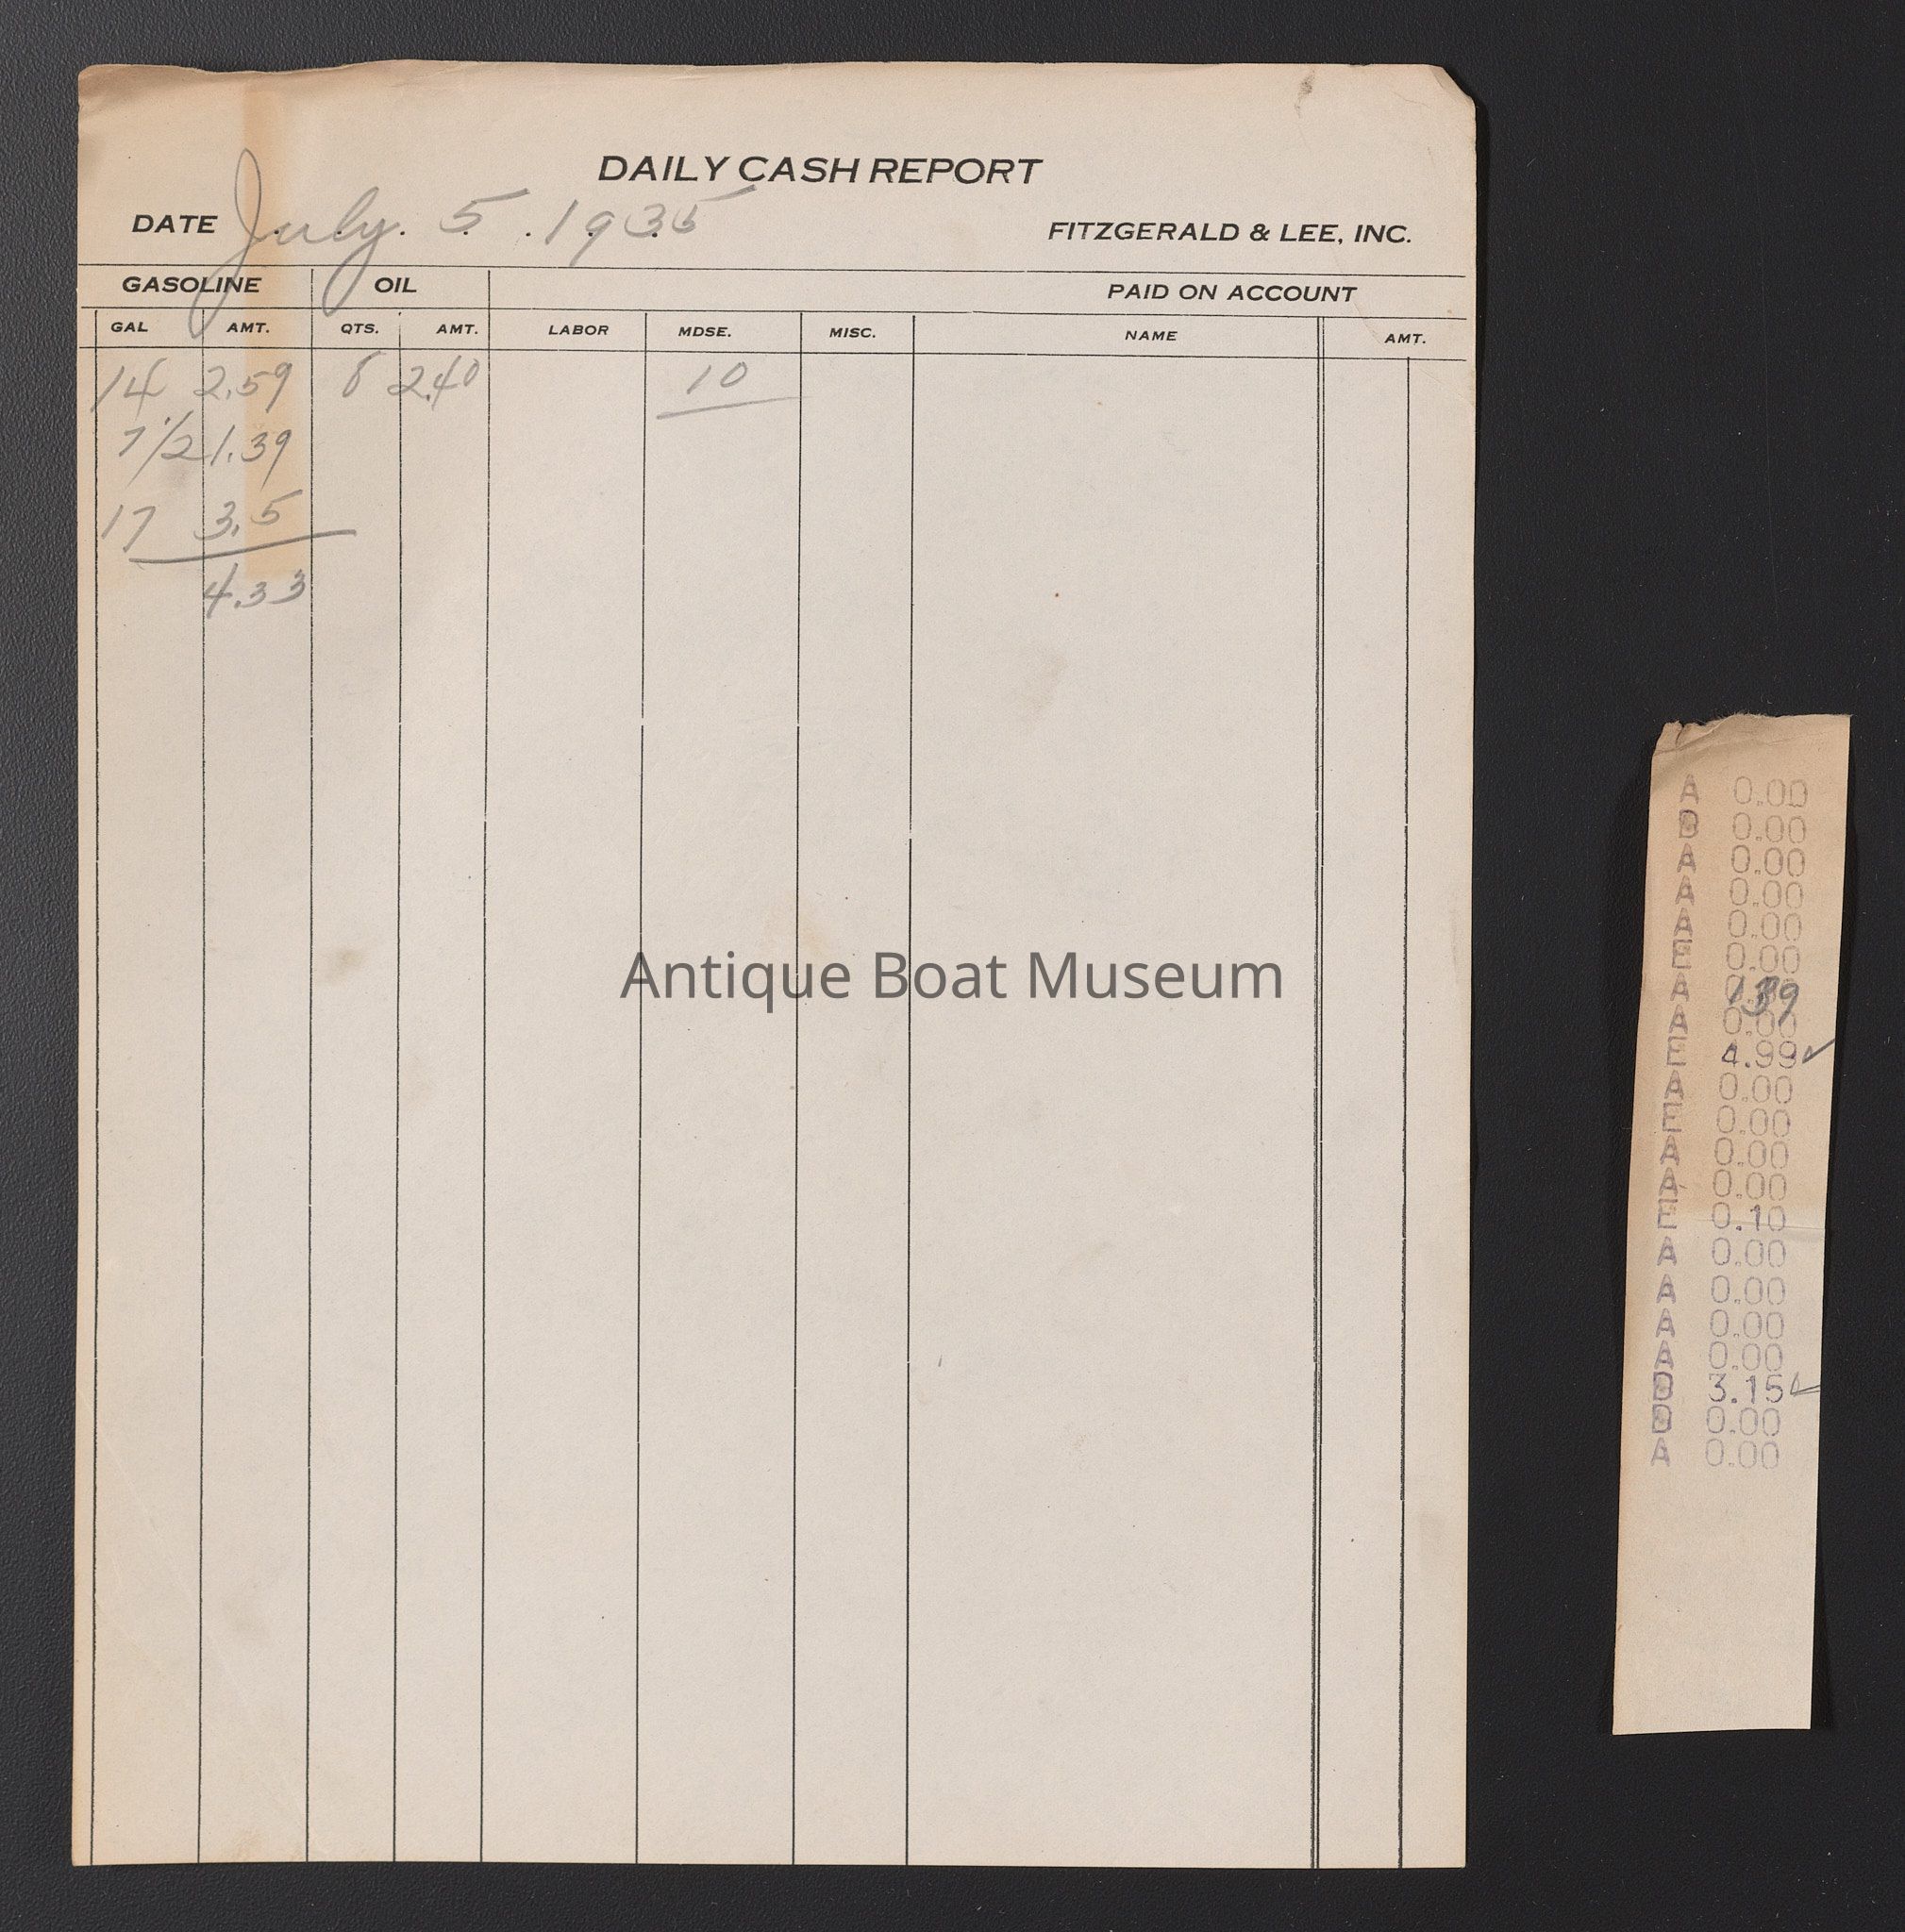 DAILY CASH REPORT
DATE July 5 . 1935
FITZGERALD & LEE, INC.
GASOLINE OIL PAID ON ACCOUNT
GAL AMT. QTS. AMT. LABOR MDSE. MISC. NAME AMT.
14 2.59 8 2.40 10
7 1/2 1.39
17 3.5
4.33
Antique Boat Museum
A 0.00
D 0.00
A 0.00
A 0.00
A 0.00
E 0.00
A 139
A 0.00
E 4.99 ✓
A 0.00
E 0.00
A 0.00
A 0.00
E 0.10
A 0.00
A 0.00
A 0.00
A 0.00
D 3.15 ✓
D 0.00
A 0.00